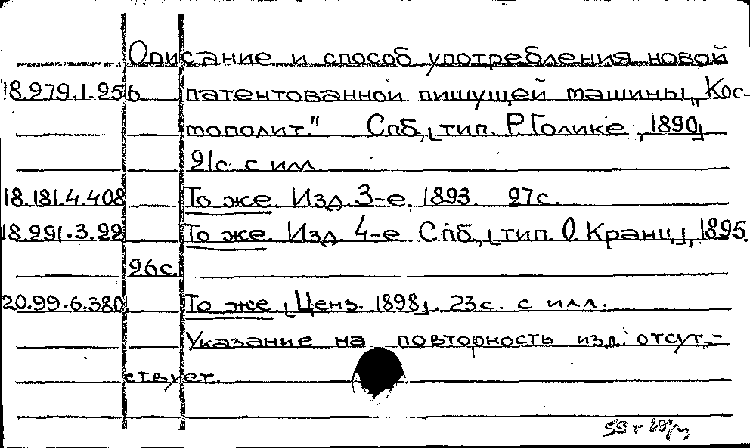 Описание и способ употребления новой
18.979.1.956 патентованной пишущей машины „Кос-
мополит." Спб, [тип. Р. Голике, 1890]
91с. с илл.
18.181.4.408 То же. Изд. 3-е. 1893. 97с.
18.991.3.99 То же. Изд. 4-е. Спб, [тип. О. Кранц], 1895.
96с.
20.99.6.380 То же. [Ценз. 1898]. 23с. с илл.
Указание на повторность изд. отсут-
ствует.